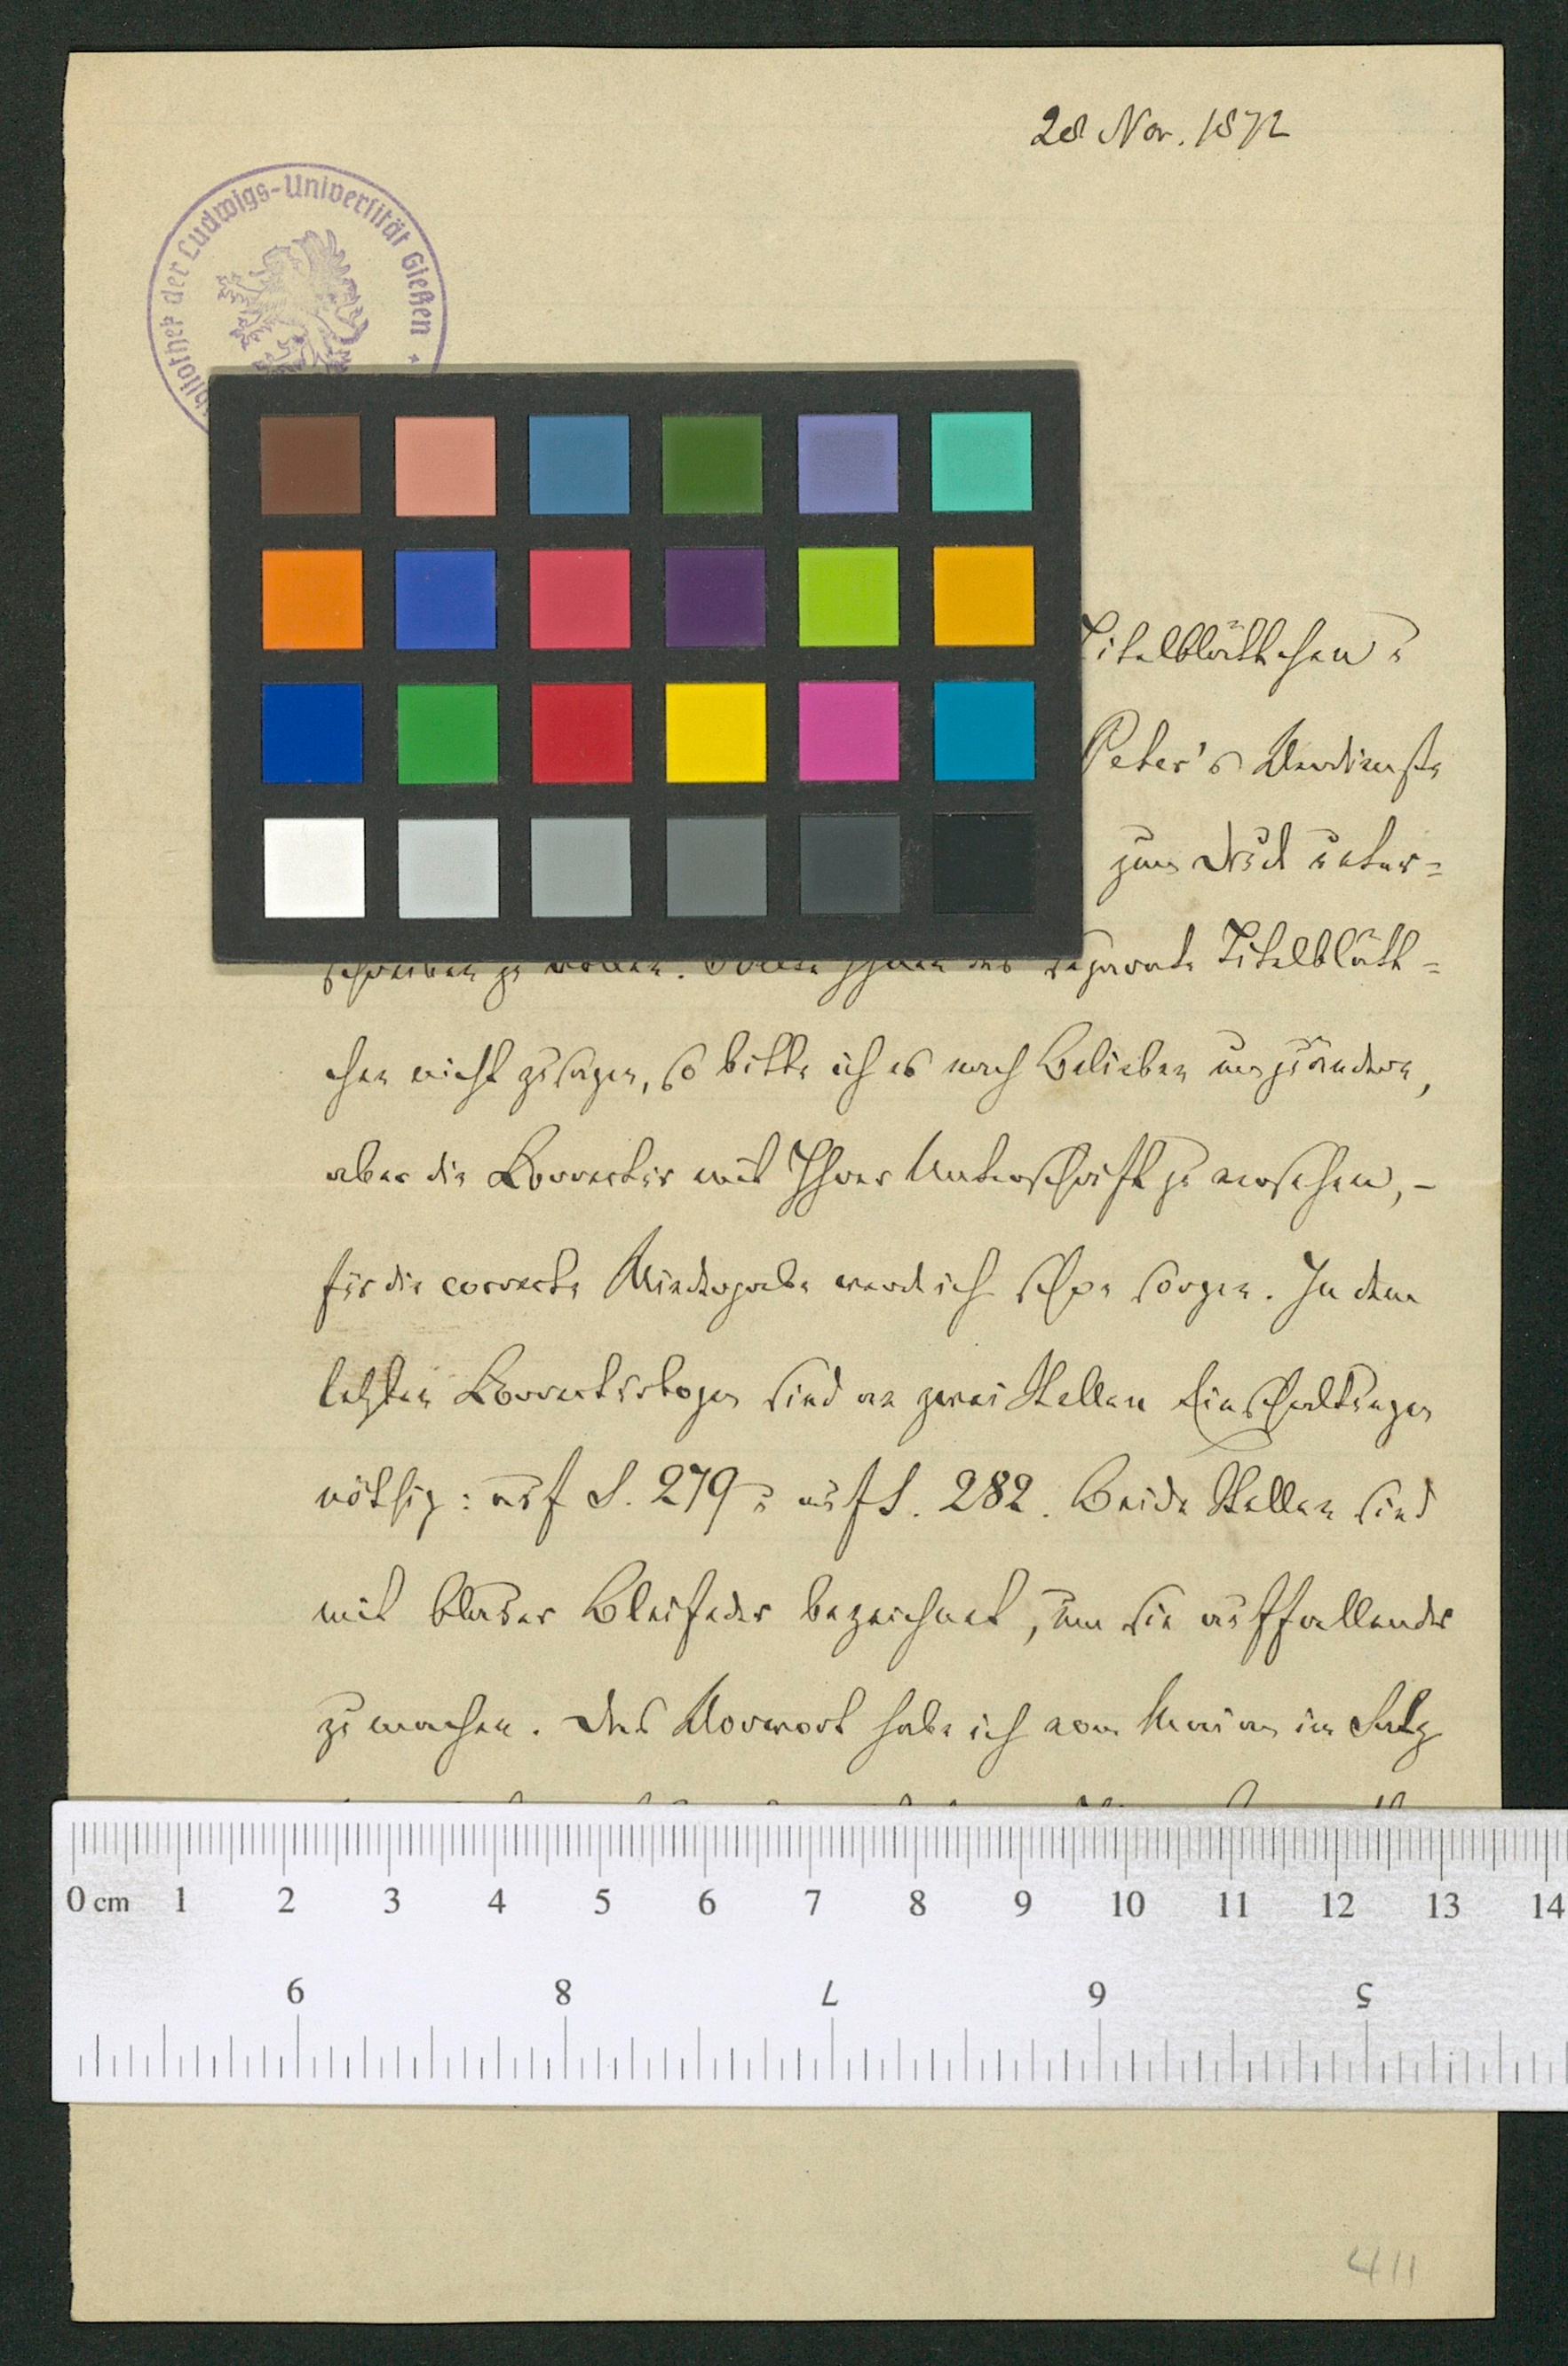 28 Nov. 1872
bibliothek der Ludwigs-Universität Gießen
Titelblättchen u
Peter's Verdienste
zum Druck unter-
schreiben zu wollen. Sollte Ihnen das separate Titelblätt-
chen nicht zusagen, so bitte ich es nach Belieben umzuändern,
aber die Correctur mit Ihrer Unterschrift zu versehen, –
für die correcte Wiedergabe werd ich schon sorgen. In dem
letzten Correcturbogen sind an zwei Stellen Einschaltungen
nöthig: auf S. 279 u auf S. 282. Beide Stellen sind
mit blauer Bleifeder bezeichnet, um sie auffallender
zu machen. Das Vorwort habe ich im Satz
0 cm 1 2 3 4 5 6 7 8 9 10 11 12 13 14
9 8 7 6 5
411